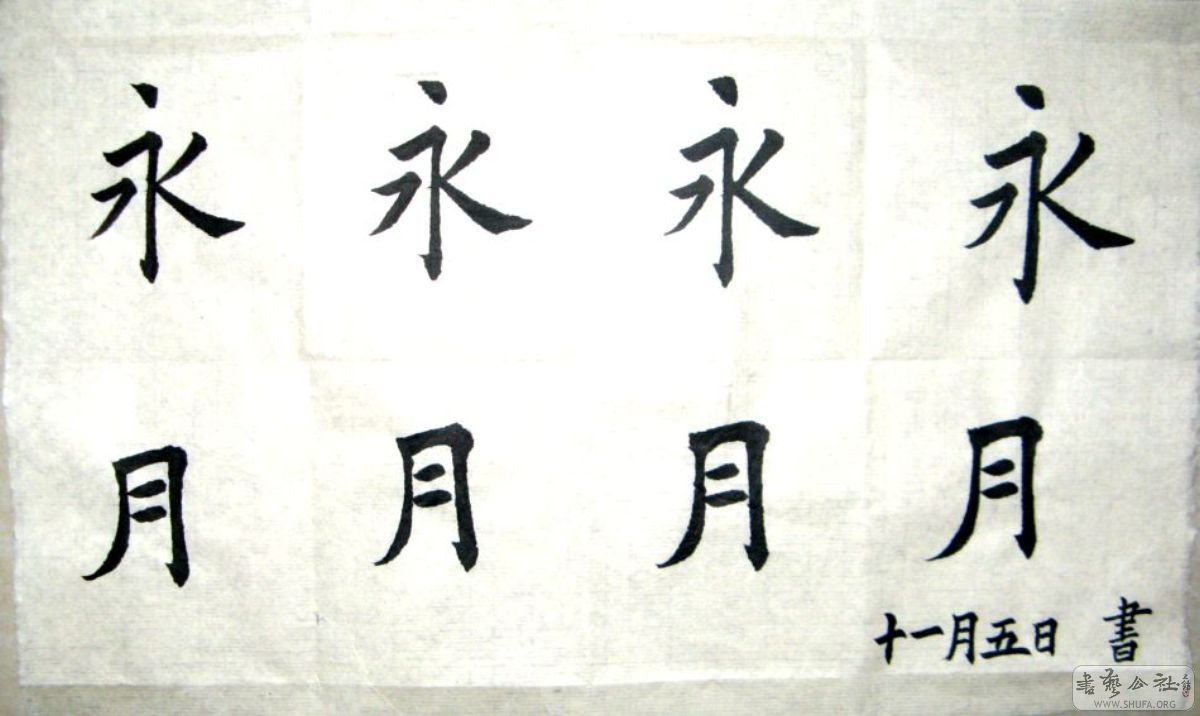 永 永 永 永
月 月 月 月
十一月五日 書
書藝公社
WWW.SHUFA.ORG